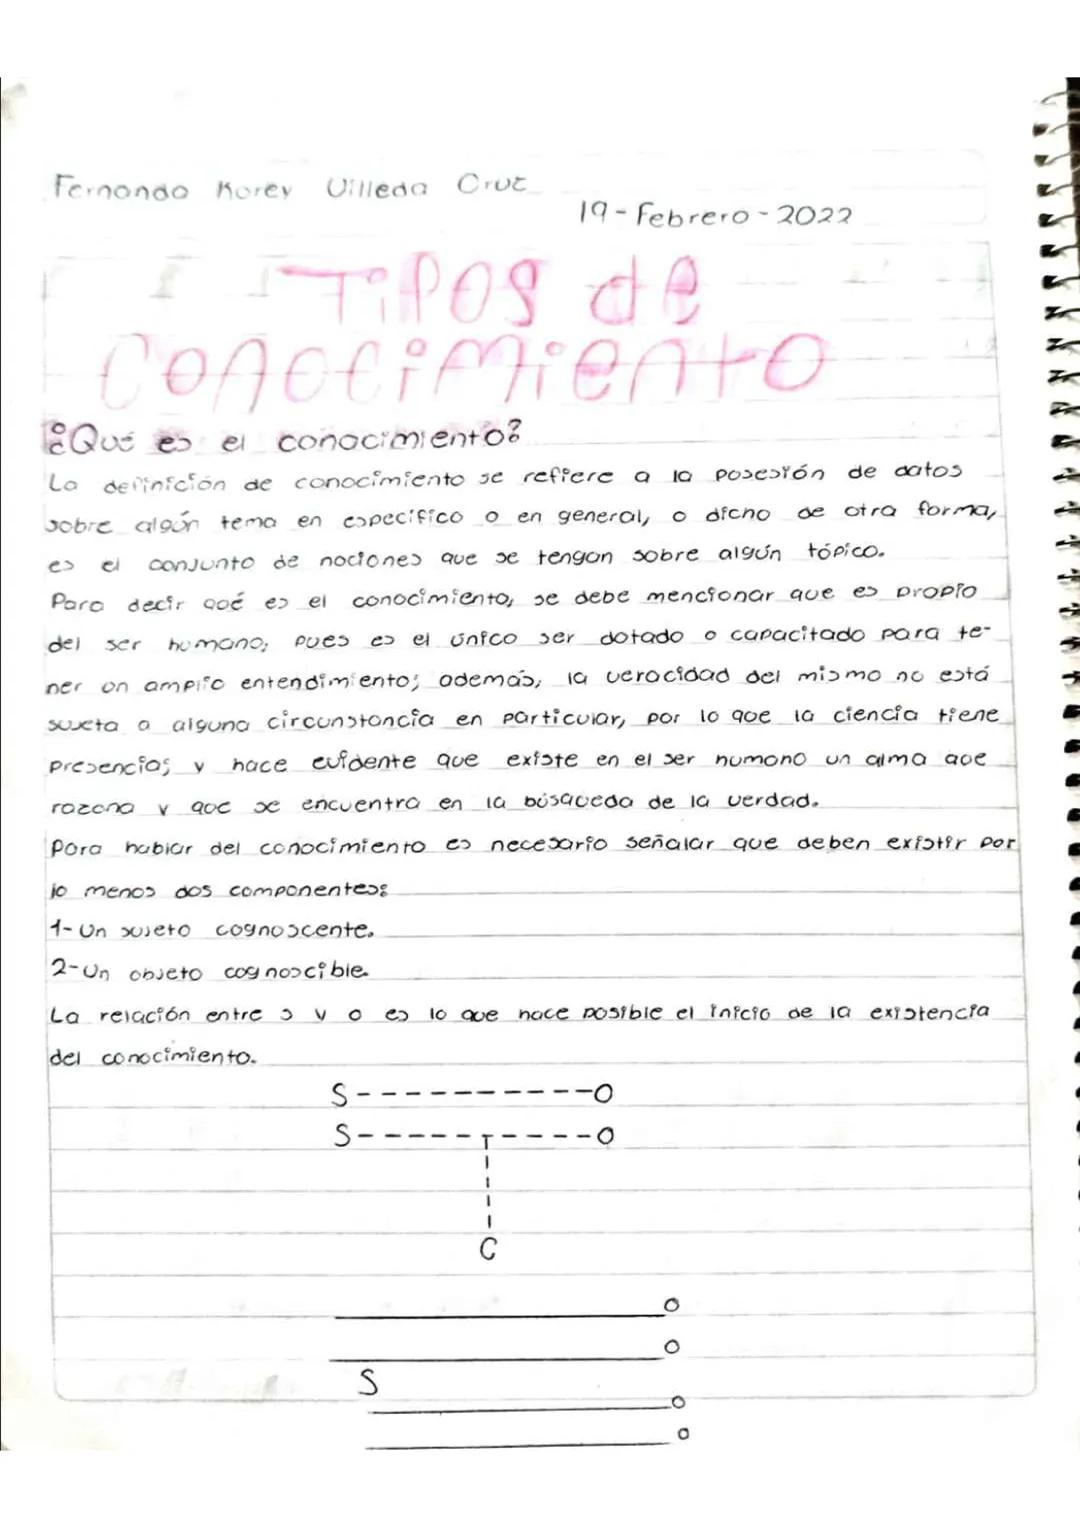 Fernando Korey Villeda Cruz
19-Febrero-2022
Tipos de
Conocimiento
¿Qué es el conocimiento?
La definición de conocimiento se refiere a la posesión de datos
sobre algún tema en específico o en general, o dicho de otra forma,
es el conjunto de nociones que se tengan sobre algún tópico.
Para decir qué es el conocimiento, se debe mencionar que es propio
del ser humano, pues es el único ser dotado o capacitado para te-
ner un amplio entendimiento; además, la verocidad del mismo no está
sujeta a alguna circunstancia en particular, por lo que la ciencia tiene
presencia; y hace evidente que existe en el ser humano un alma que
razona y que se encuentra en la búsqueda de la verdad.
Para hablar del conocimiento es necesario señalar que deben existir por
lo menos dos componentes:
1-Un sujeto cognoscente.
2-Un objeto cognoscible.
La relación entre s y o es lo que hace posible el inicio de la existencia
del conocimiento.
S-----------O
S-----T-----O
C
O
O
S
O
O